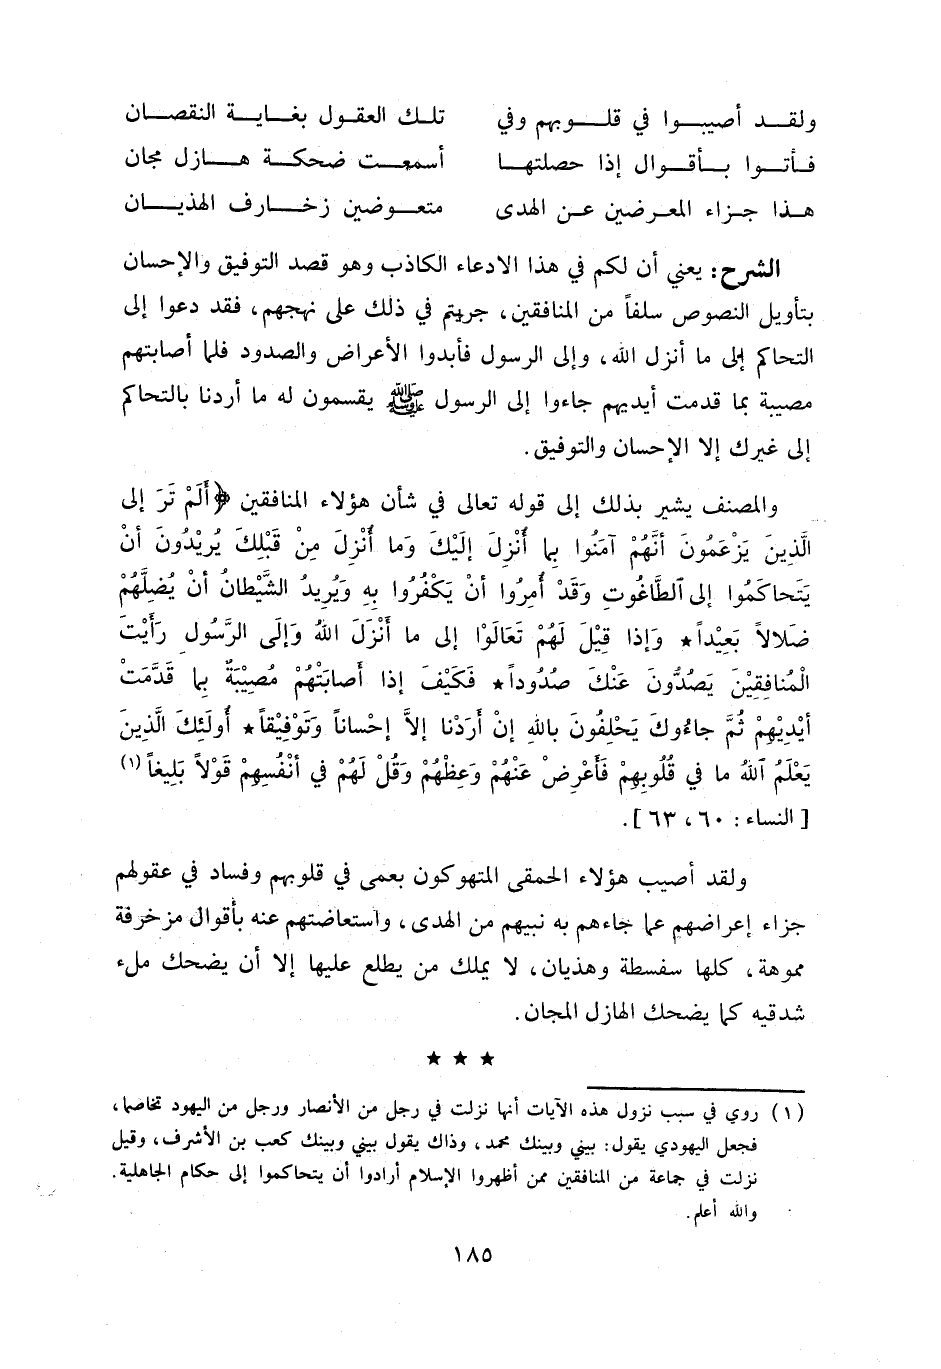 ولقد أصيبوا في قلوبهم وفي تلك العقول بغاية النقصان
فأتوا بأقوال إذا حصلتها أسمعت ضحكة هازل مجان
هذا جزاء المعرضين عن الهدى متعوضين زخارف الهذيان
الشرح: يعني أن لكم في هذا الادعاء الكاذب وهو قصد التوفيق والإحسان
بتأويل النصوص سلفاً من المنافقين، جريتم في ذلك على نهجهم، فقد دعوا إلى
التحاكم إلى ما أنزل الله، وإلى الرسول فأبدوا الأعراض والصدود فلما أصابتهم
مصيبة بما قدمت أيديهم جاءوا إلى الرسول ﷺ يقسمون له ما أردنا بالتحاكم
إلى غيرك إلا الإحسان والتوفيق.
والمصنف يشير بذلك إلى قوله تعالى في شأن هؤلاء المنافقين ﴿أَلَمْ تَرَ إلى
الَّذِينَ يَزْعَمُونَ أنَّهُمْ آمَنُوا بِما أُنْزِلَ إلَيْكَ وَما أُنْزِلَ مِنْ قَبْلِكَ يُرِيْدُونَ أنْ
يَتَحاكَمُوا إلى ٱلطَّاغُوتِ وَقَدْ أُمِرُوا أنْ يَكْفُرُوا بِهِ وَيُرِيدُ الشَّيْطانُ أنْ يُضِلَّهُمْ
ضَلالاً بَعِيْداً★ وَإذا قِيْلَ لَهُمْ تَعَالَوْا إلى ما أَنْزَلَ اللهُ وَإلَى الرَّسُولِ رَأَيْتَ
الْمُنافِقِيْنَ يَصُدُّونَ عَنْكَ صُدُوداً★ فَكَيْفَ إذا أصابَتْهُمْ مُصِيْبَةٌ بِما قَدَّمَتْ
أيْدِيْهِمْ ثُمَّ جاءُوكَ يَحْلِفُونَ باللهِ إنْ أرَدْنا إلاَّ إحْساناً وَتَوْفِيْقاً★ أُولَئِكَ الَّذِينَ
يَعْلَمُ ٱللهُ ما في قُلُوبِهِمْ فَأَعْرِضْ عَنْهُمْ وَعِظْهُمْ وَقُلْ لَهُمْ في أنْفُسِهِمْ قَوْلاً بَلِيغاً (١)
[النساء: ٦٠، ٦٣].
ولقد أصيب هؤلاء الحمقى المتهوكون بعمى في قلوبهم وفساد في عقولهم
جزاء إعراضهم عما جاءهم به نبيهم من الهدى، واستعاضتهم عنه بأقوال مزخرفة
مموهة، كلها سفسطة وهذيان، لا يملك من يطلع عليها إلا أن يضحك ملء
شدقيه كما يضحك الهازل المجان.
★ ★ ★
(١) روي في سبب نزول هذه الآيات أنها نزلت في رجل من الأنصار ورجل من اليهود تخاصما،
فجعل اليهودي يقول: بيني وبينك محمد، وذاك يقول بيني وبينك كعب بن الأشرف، وقيل
نزلت في جماعة من المنافقين ممن أظهروا الإسلام أرادوا أن يتحاكموا إلى حكام الجاهلية.
والله أعلم.
١٨٥